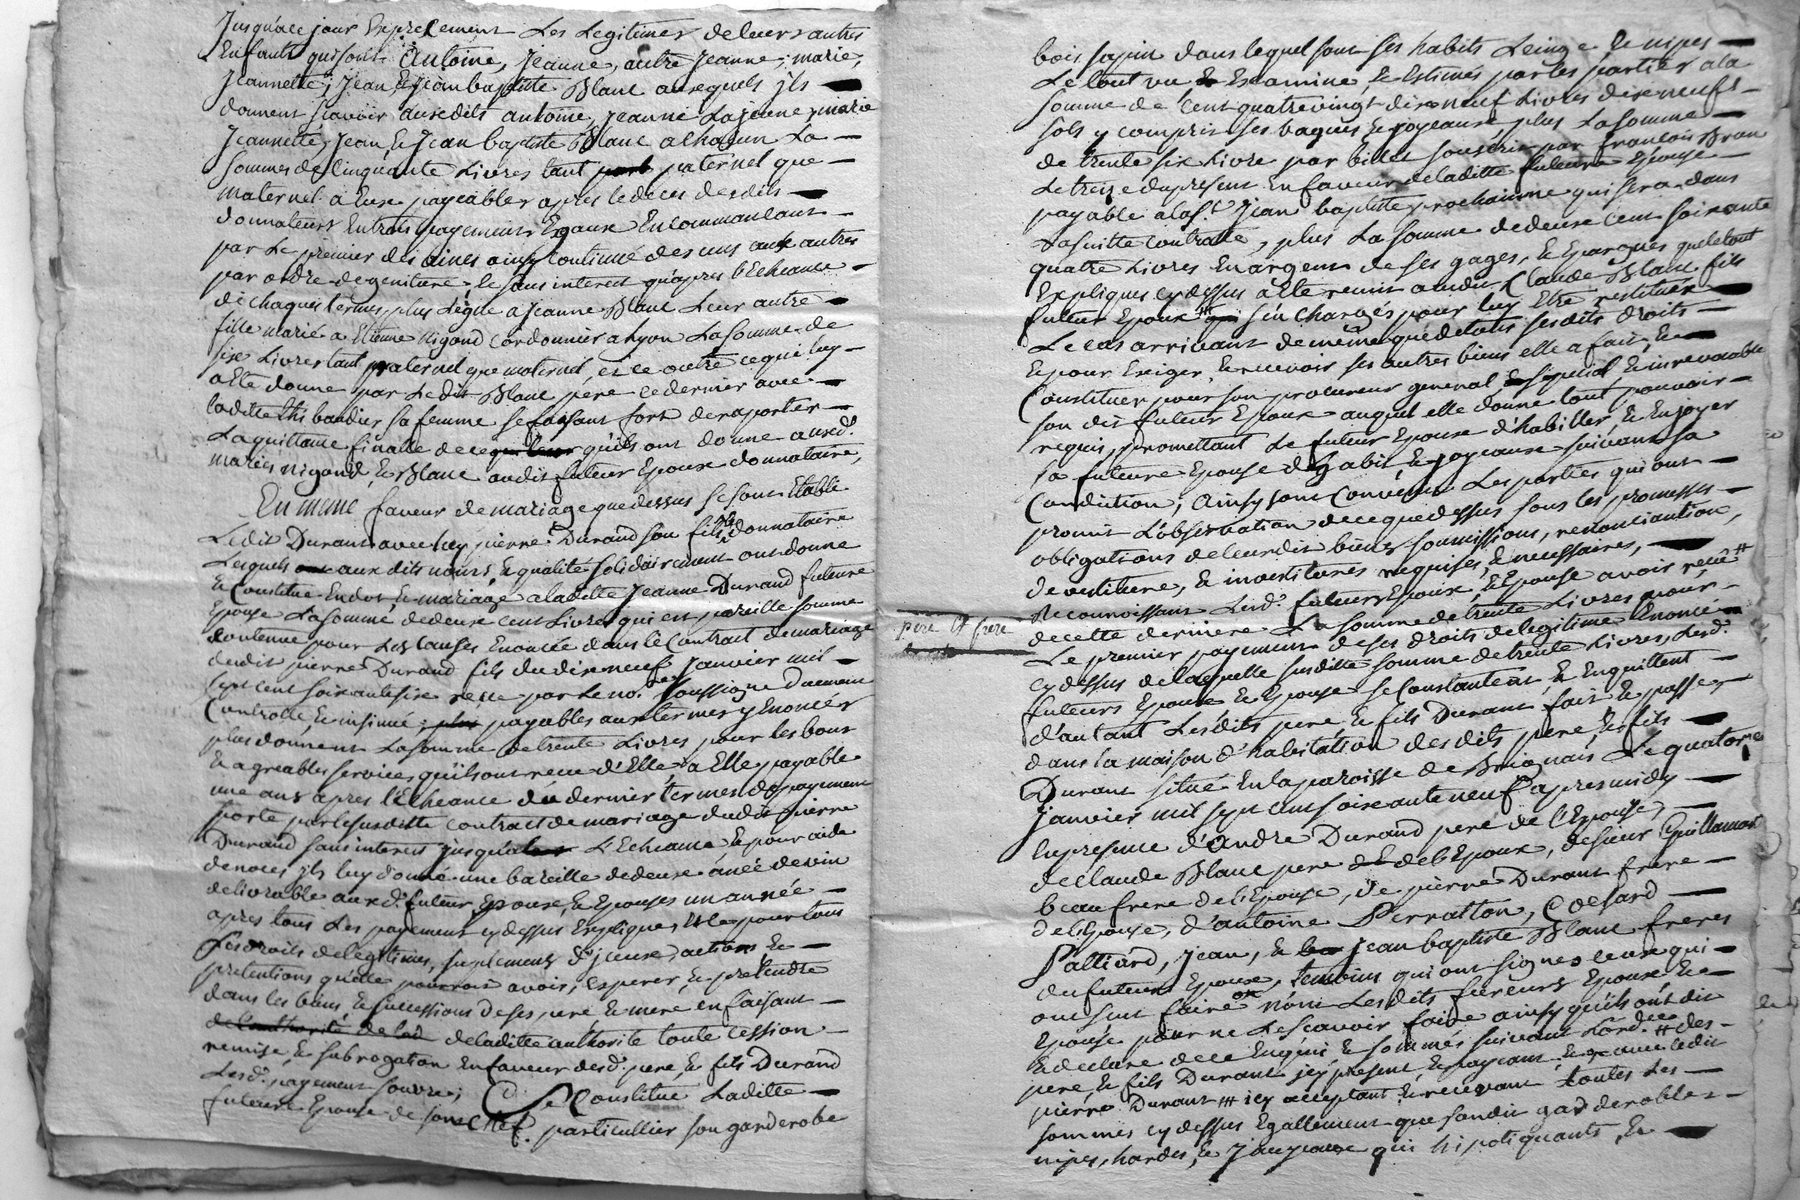 Jusqu'a ce jour Expressement Les Legitimes de leurs autres
Enfants qui sont Antoine, Jeanne, autre Jeanne, marie,
Jeannette, Jean, & Jean baptiste Blanc auxquels jls
donnent scavoir auxdits antoine, Jeanne La jeune, marie
Jeannette, Jean, & Jean baptiste Blanc a chacun La
sommes de Cinquante Livres tant paternel que
maternel a Eux payables apres le deces desdits
donnateurs En trois payements Egaux En commancant
par Le premier des aines ainsy continué des uns aux autres
par ordre de geniture, & sans interest qu'apres l'Echeance
de chaques termes, plus Legue a Jeanne Blanc Leur autre
fille marié a Etienne nigond Cordonnier a Lyon La somme de
six Livres tant paternel que maternel, et ce outre ce qui luy
a Eté donne par Ledit Blanc pere ce dernier avec
laditte thibaudier sa femme se faisant fort de raporter
La quittance finalle de ce qu'ils ont donne auxd.
mariés nigond, & Blanc audit futeur Epoux donnataire,
En meme faveur de mariage que dessus se sont Etabli
Ledit Durant avec luy pierre Durand son fils donnataire
Lesquels aux dits noms, & qualité solidairement ont donne
& Constitue En dot, & mariage a ladette Jeanne Durand future
Epouse La somme de deux cent Livres qui est pareille somme
contenue pour Les Causes Enoncée dans le Contract de mariage
dudit pierre Durand fils du dix neuf Janvier mil
sept cent soixante six recue par Le no.re soussigné duement
Controllé & insinué; payables aux termes y Enoncés
plus donnent La somme de trente Livres pour les bons
& agreables services qu'ils ont receu d'Elle, a Elle payable
une ans apres l'Echeance du dernier termes de payement
porte par le susditte contract de mariage dudit pierre
Durand sans interest jusqu'a L'Echeance & pour aide
de noces jls luy donne une bareille de deux anée de vin
delivrable auxd. futeurs Epoux, & Epouses un année
apres tous Les payement cy dessus Expliques & le pour tous
Ses droits de legitimes, suplements d'jceux, actions &
pretentions qu'elle pourroit avoir, esperer, & pretendre
dans les biens, & successions de ses pere & mere en faisant
de laditte authorité toute cession
remise, & subrogation En faveur desd. pere, & fils Durand
Lesd. payement souvre; Se Constitue Laditte
future Epouse de son Chef particullier son garderobe
pere & frere
bois sapin dans lequel sont ses habits Leinge & nipes
Le tout vu & Examine, & Estimés par les parties a la
somme de Cent quatre vingt dix neuf Livres dix neuf
sols y compris ses bagues & joyeaux, plus La somme
de trente six Livre par billet souscrit par francois Brun
Le treize du present En faveur de ladite future Epouse
payable a la s.t Jean baptiste prochaine qui sera dans
La suitte controllé, plus La somme de deux cent soixante
quatre Livres En argent de ses gages, & Epargnes que le tout
Expliques cy dessus a Eté remit audit Claude Blanc fils
futeur Epoux s'en charges pour luy Etre restituer
Le cas arrivant de même que de tous sesdits droits
& pour Exiger, & recevoir ses autres biens elle a fait, &
Constituer pour son procureur general & special & irrevocable
son dit futeur Epoux auquel elle donne tout pouvoir
requis, promettant Le futeur Epoux d'habiller, & Enjoyer
sa future Epouse d'habit & joyeaux suivant sa
Condiction, Ainsy sont convenu Les parties qui ont
promit L'observation de ce que dessus sous les promesses
obligations de leursdit biens soumissions, renonciantion,
de vestiture, & investitures requises, & necessaires,
Reconnoissant Lesd. futeurs Epoux, & Epouse avoir reçu
de cette derniere La somme de trente Livres pour
Le premier payement de ses droits de legitime Enoncé
cy dessus de laquelle susditte somme de trente Livres, Lesd.
futeurs Epoux & Epouse se Constantent & En quittent
d'autant Lesdits pere & fils Durant fait & passe
dans la maison d'habitation desdits pere, & fils
Durant situé En la paroisse de Brignais Le quatorze
janvier mil sept cent soixante neuf apres midy
En presence d'Andre Durand pere de l'Epouse,
de Claude Blanc pere de l'Epoux, de sieur Guillaumot
beau frere de l'Epouse, de pierre Durant frere
de l'Epouse, d'antoine Perratton, Coesard
Palliard, Jean, & Jean baptiste Blanc freres
du futeur Epoux, temoins qui ont signes ceux qui
ont sçut faire non Lesdits futeurs Epoux &
Epouse pour ne Lescavoir faire ainsy qu'ils ont dit
& declare de ce Enquis & sommés suivant L'ord.ce des
pere, & fils Durant jcy present, & payeant, & avec ledit
pierre Durant jcy acceptant & recevant toutes Les
sommes cy dessus Egallement que sondit garderobles
nipes, hardes, & Jauyeaux qui hipotiquants, &